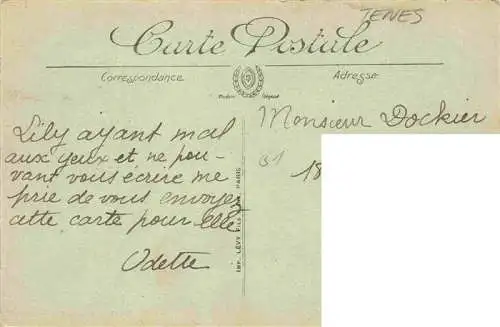 TENES
Carte Postale
Correspondance
Adresse
Modèle Déposé
Monsieur Dockier
Lily ayant mal
aux yeux et ne pou-
vant vous écrire me
prie de vous envoyez
cette carte pour elle
Odette
18
IMP. LÉVY FILS PARIS